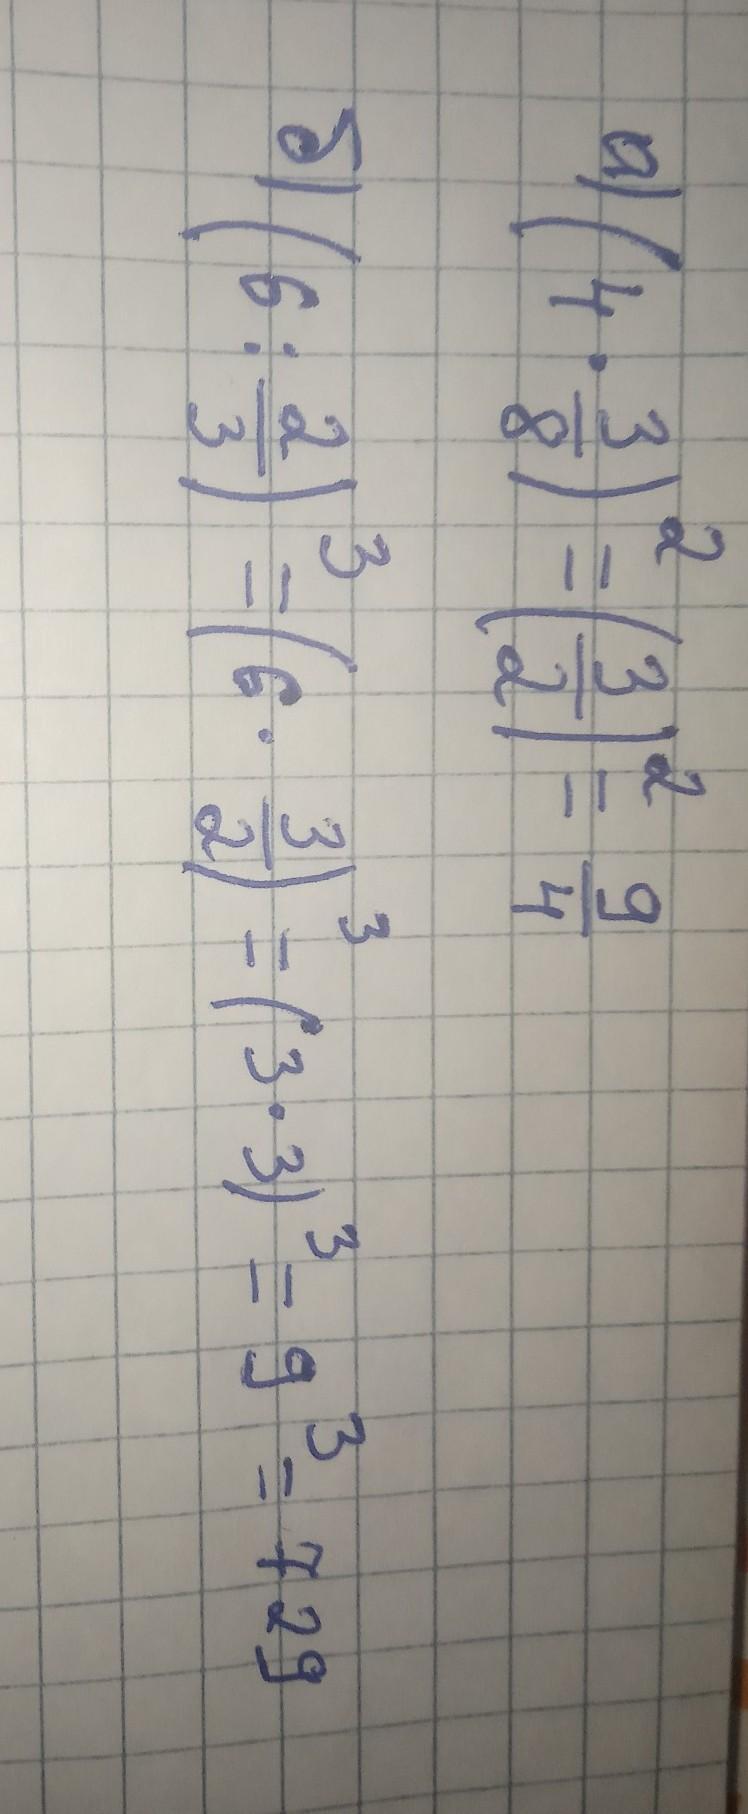 а) (4 · 3/8)² = (3/2)² = 9/4
б) (6 : 2/3)³ = (6 · 3/2)³ = (3 · 3)³ = 9³ = 729